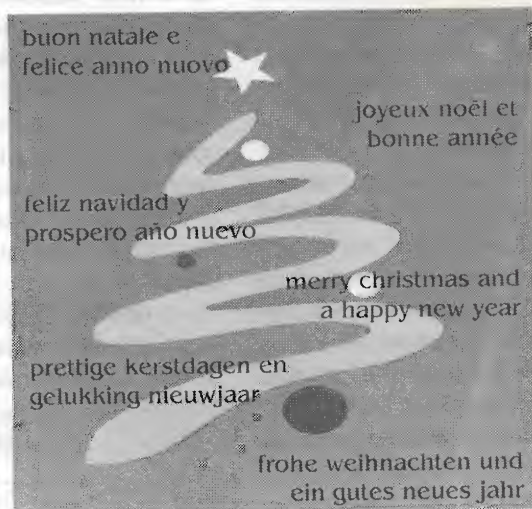 buon natale e
felice anno nuovo
joyeux noël et
bonne année
feliz navidad y
prospero año nuevo
merry christmas and
a happy new year
prettige kerstdagen en
gelukking nieuwjaar
frohe weihnachten und
ein gutes neues jahr